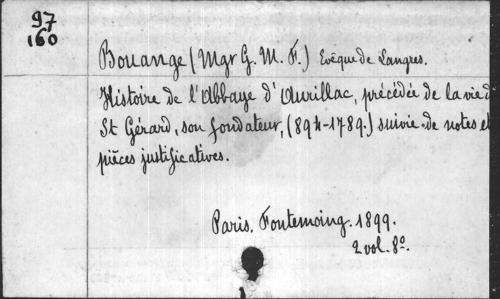 97
160
Bouange (Mgr G. M. F.) Evêque de Langres.
Histoire de l'Abbaye d'Aurillac, précédée de la vie d
St Gérard, son fondateur, (894-1789.) suivie de notes et
pièces justificatives.
Paris. Fontemoing. 1899.
2 vol. 8º.